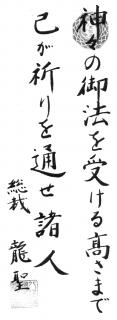 神々の御法を受ける高さまで
己が祈りを通せ諸人
総裁 龍聖